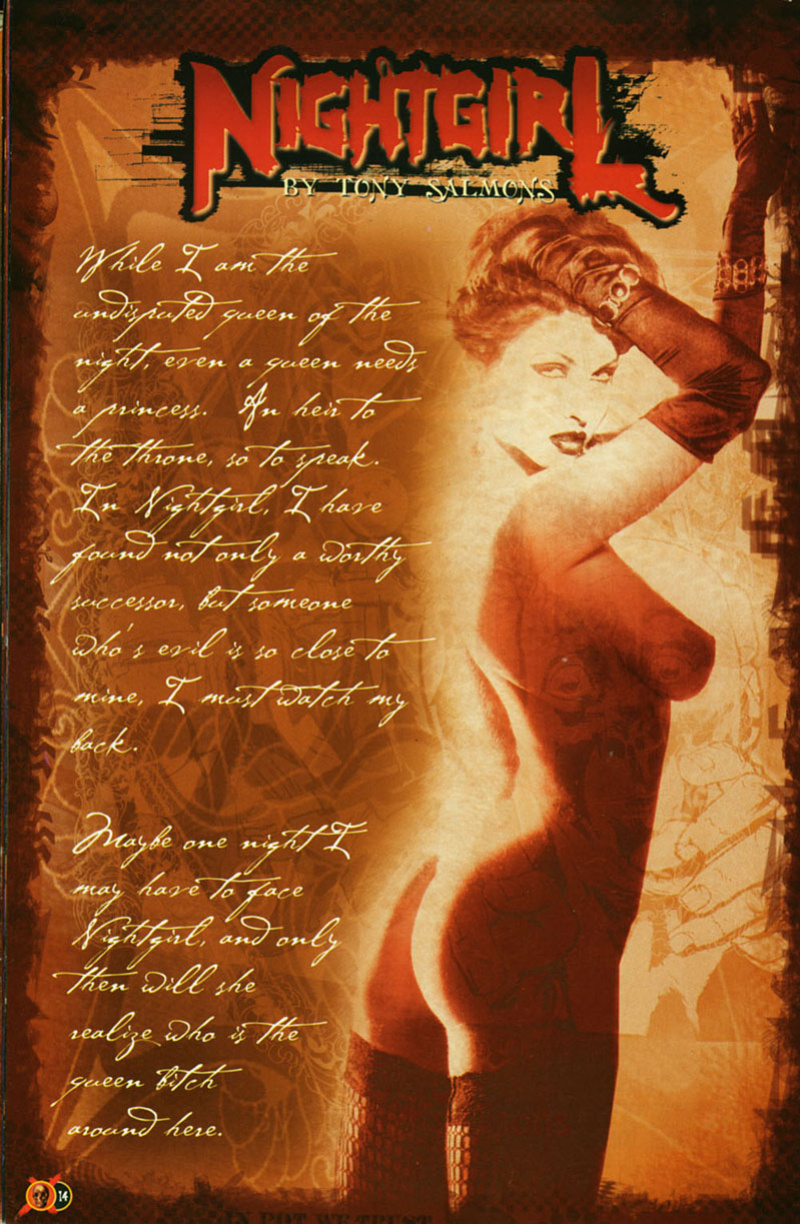 NIGHTGIRL
BY TONY SALMONS
While I am the
undisputed queen of the
night, even a queen needs
a princess. An heir to
the throne, so to speak.
In Nightgirl, I have
found not only a worthy
successor, but someone
who's evil is so close to
mine, I must watch my
back.
Maybe one night I
may have to face
Nightgirl, and only
then will she
realize who is the
queen bitch
around here.
14
IN ROT WE TRUST